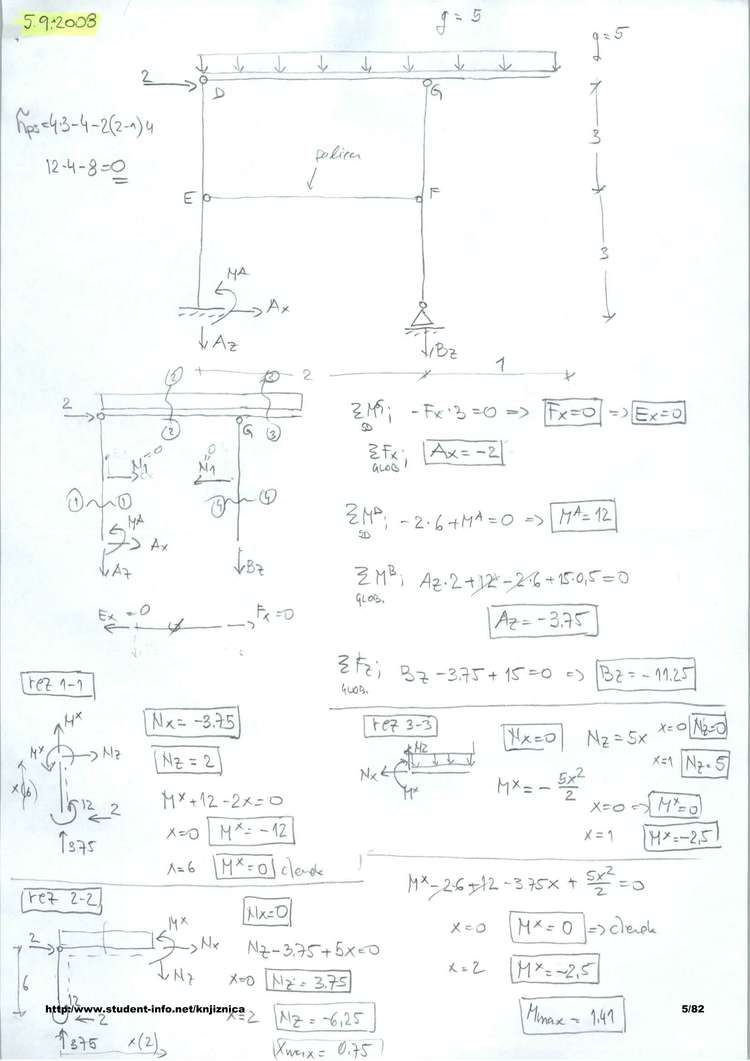 5.9.2008
g = 5
g = 5
2
D
G
ñps = 4·3-4-2(2-1)4
12-4-8=0
3
polica
E
F
3
MA
Ax
Az
Bz
2
1
2
2
3
2
2
G
3
N1 = 0
N1 = 0
1
1
4
4
MA
Ax
Az
Bz
Ex = 0
Fx = 0
ΣMG; -Fx·3=0 => Fx=0 => Ex=0
ΣFx; Ax = -2
GLOB.
ΣMD; -2·6+MA=0 => MA=12
ΣMB; Az·2+12-2·6+15·0,5=0
GLOB.
Az = -3.75
ΣFz; Bz-3.75+15=0 => Bz = -11.25
GLOB.
rez 1-1
Mx
Nz
Mx
x(6)
12
2
3.75
Nx = -3.75
Nz = 2
Mx+12-2x=0
x=0 Mx = -12
x=6 Mx = 0 členek
rez 3-3
Nz
Nx
Mx
Nx=0
Nz = 5x
x=0 Nz=0
x=1 Nz=5
Mx = - 5x²/2
x=0 => Mx=0
x=1 Mx=-2,5
rez 2-2
2
Mx
Nx
Nz
6
12
2
3.75
x(2)
Nx=0
Nz-3.75+5x=0
x=0 Nz = 3.75
x=2 Nz = -6,25
Xmax = 0.75
Mx-2·6+12-3.75x + 5x²/2 = 0
x=0 Mx = 0 => členek
x=2 Mx = -2,5
Mmax = 1.41
http:/www.student-info.net/knjiznica
5/82